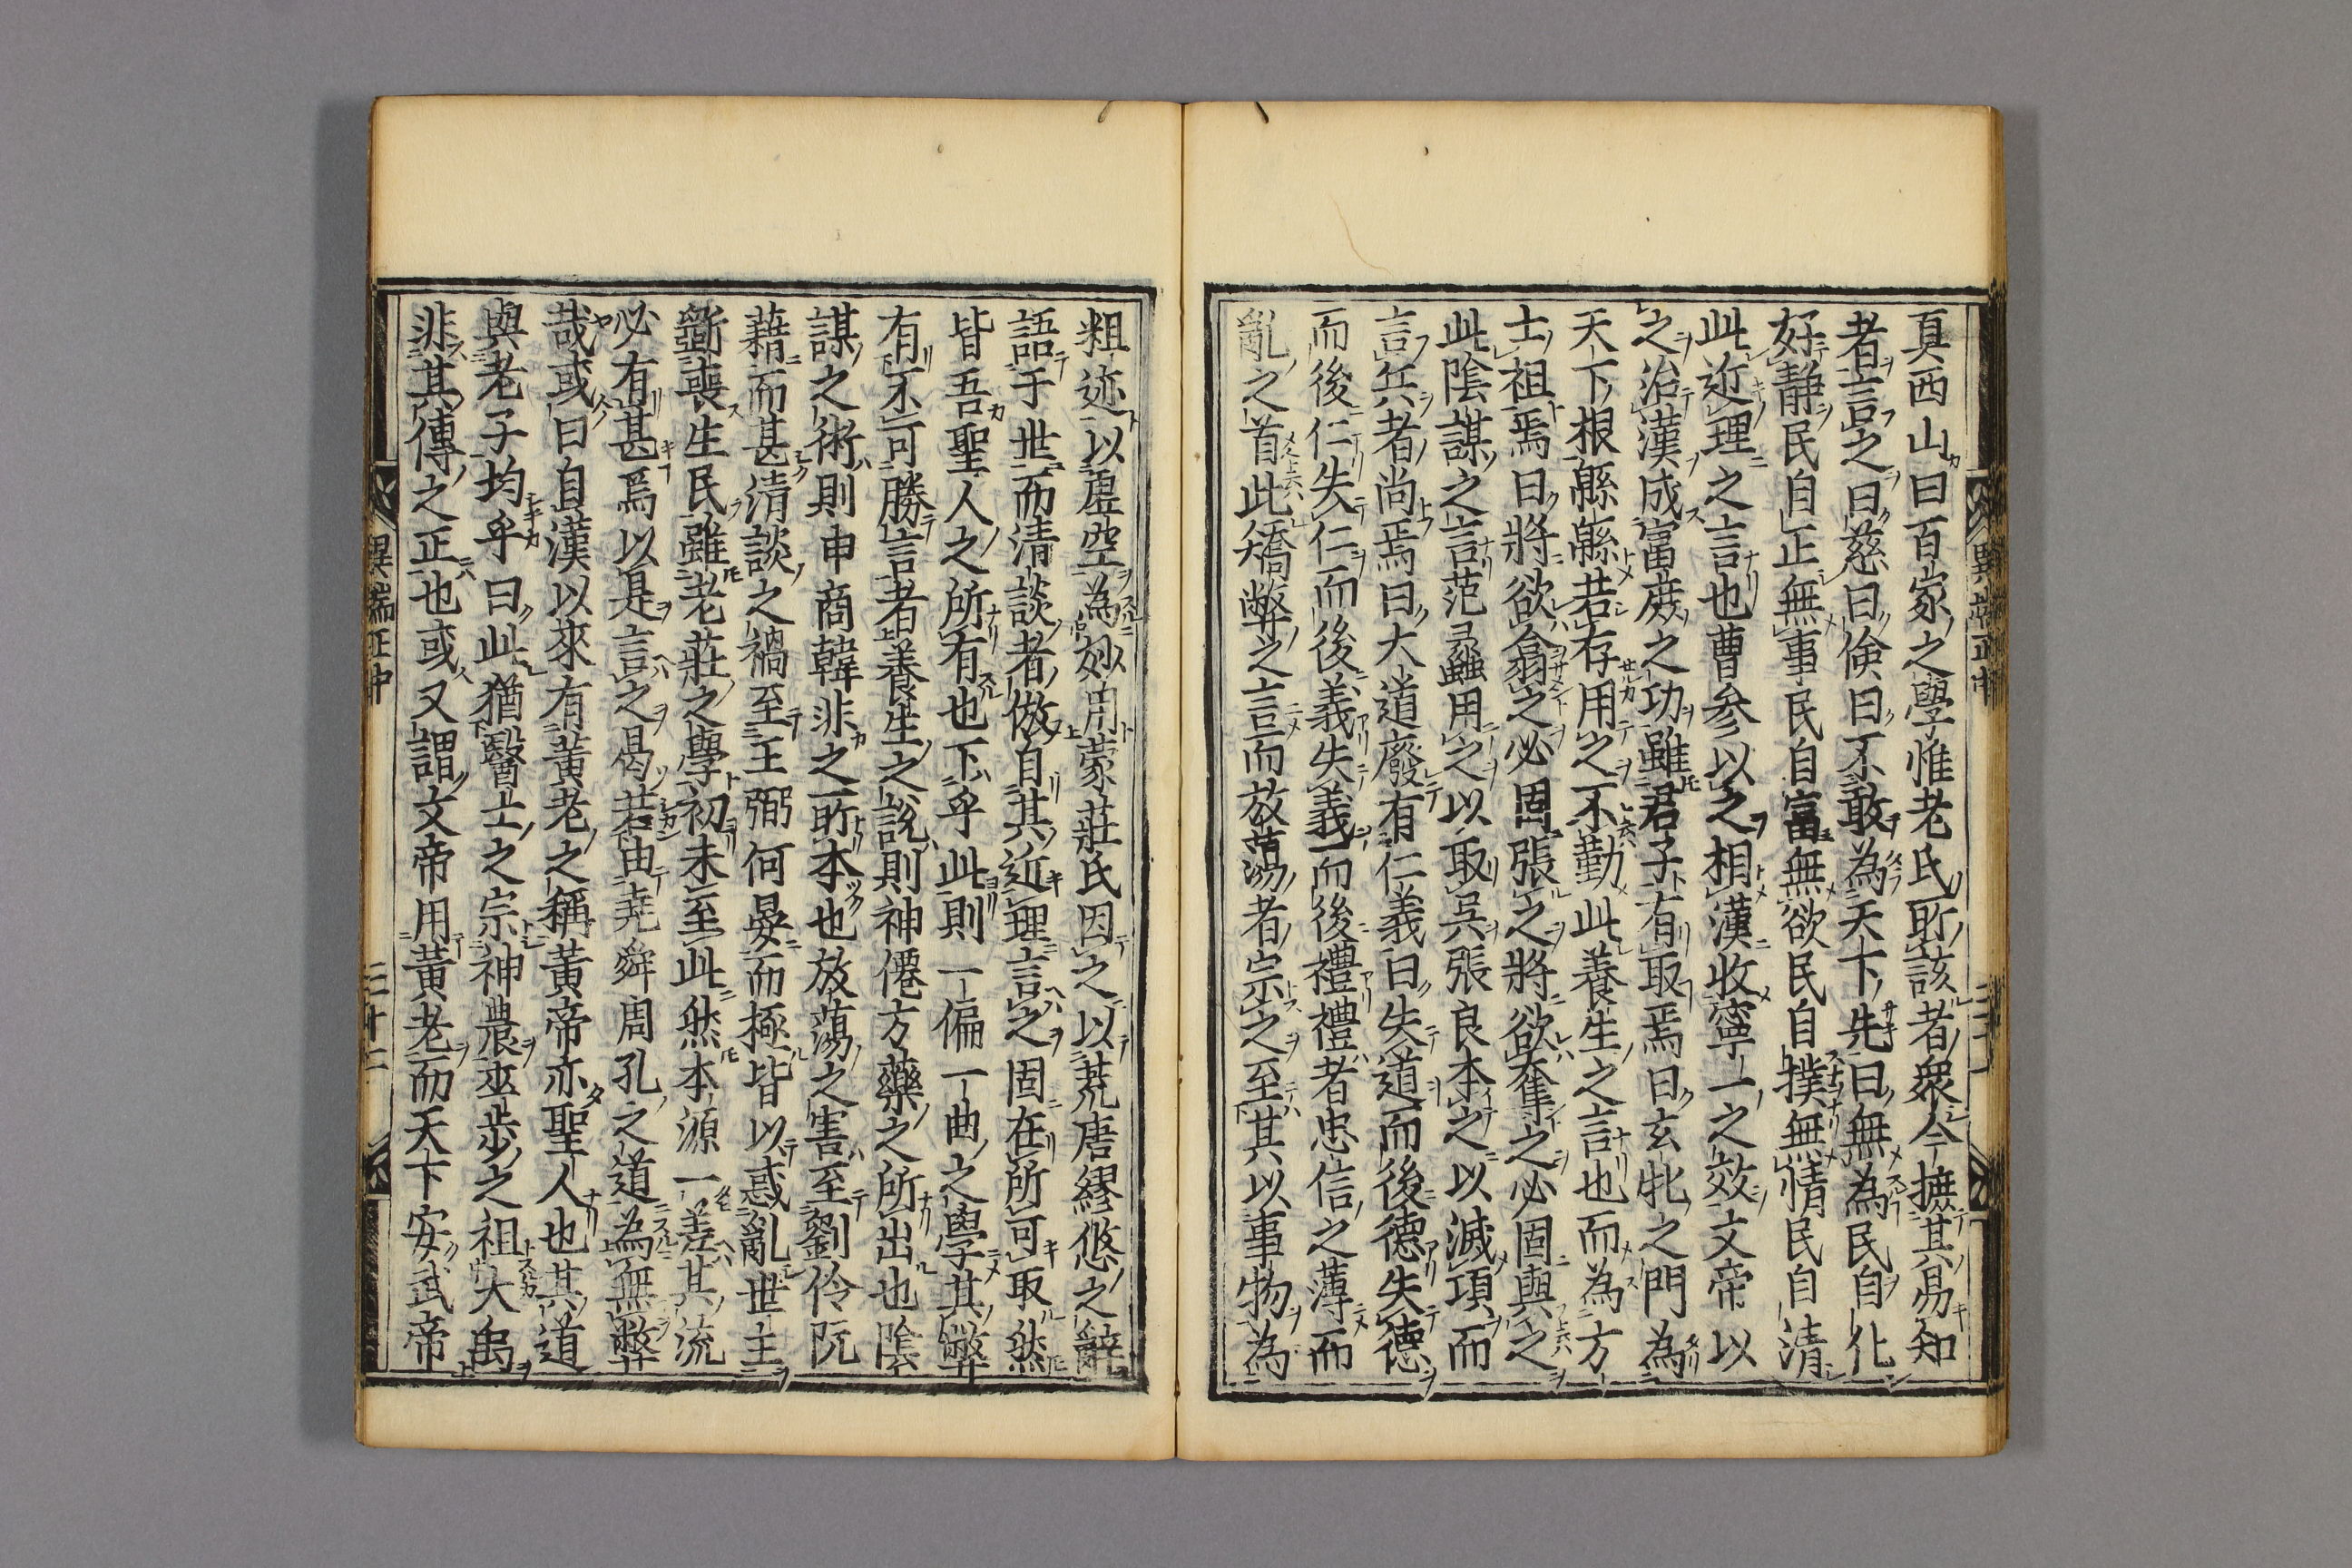 真西山曰百家之學惟老氏所該者衆今摭其易知
者言之曰慈曰儉曰不敢為天下先曰無為民自化
好靜民自正無事民自富無欲民自撲無情民自清
此近理之言也曹參以之相漢收寧一之效文帝以
之治漢成富庻之功雖君子有取焉曰玄牝之門為
天下根緜緜若存用之不勤此養生之言也而為方
士祖焉曰將欲翕之必固張之將欲奪之必固與之
此陰謀之言范蠡用之以取吳張良本之以滅項而
言兵者尚焉曰大道廢有仁義曰失道而後德失德
而後仁失仁而後義失義而後禮禮者忠信之薄而
亂之首此矯弊之言而放蕩者宗之至其以事物為
粗迹以虛空為妙用蒙莊氏因之以荒唐繆悠之辭
語于世而清談者倣自其近理言之固在所可取然
皆吾聖人之所有也下乎此則一偏一曲之學其弊
有不可勝言者養生之說則神僊方藥之所出也陰
謀之術則申商韓非之所本也放蕩之害至劉伶阮
藉而甚清談之禍至王弼何晏而極皆以惑亂世主
斵喪生民雖老莊之學初未至此然本源一差其流
必有甚焉以是言之曷若由堯舜周孔之道為無弊
哉或曰自漢以來有黃老之稱黃帝亦聖人也其道
與老子均乎曰此猶醫士之宗神農巫步之祖大禹
非其傳之正也或又謂文帝用黃老而天下安武帝
異端正中
二十二